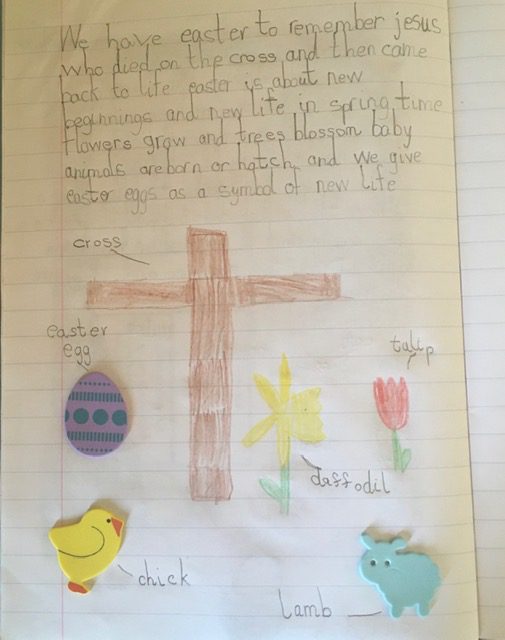 We have easter to remember jesus
who died on the cross and then came
back to life easter is about new
beginnings and new life in spring time
flowers grow and trees blossom baby
animals are born or hatch and we give
easter eggs as a symbol of new life
cross
easter
egg
talip
daffodil
chick
lamb